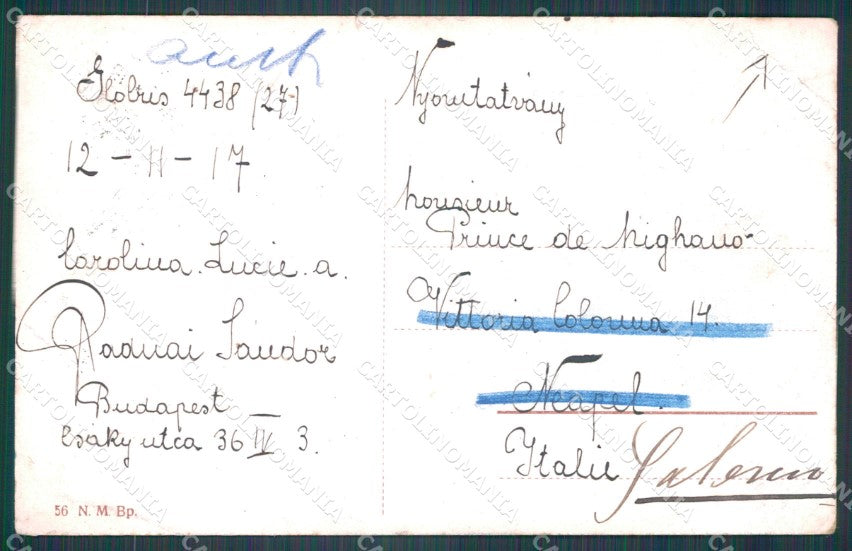 Globus 4438 (27)
12 - II - 17
Carolina. Lucie. a.
Raduai Sándor
Budapest
Csáky utca 36 IV 3.
56 N. M. Bp.
Nyomtatvány
Monsieur
Prince de Mighano
Vittoria Colonna 14.
Neapel.
Italie Salerno
CARTOLINOMANIA